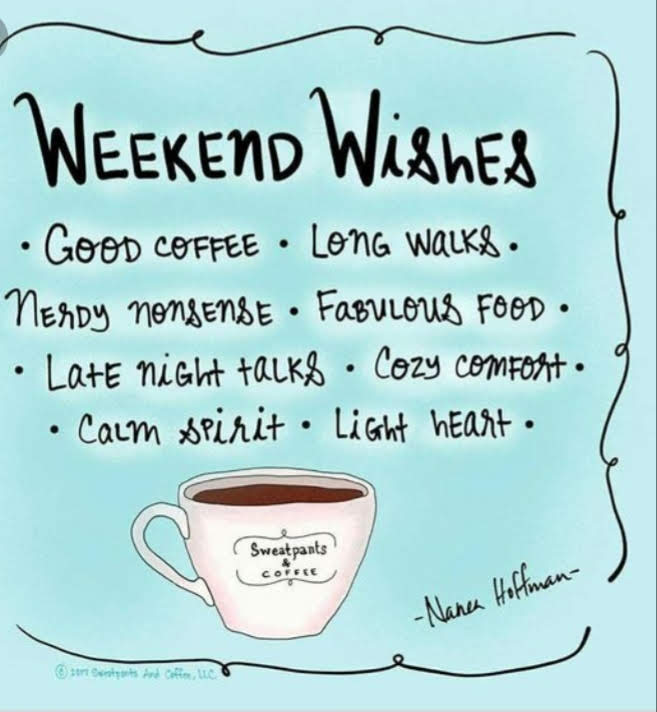 WEEKEND WISHES
• GOOD COFFEE • LONG WALKS •
NERDY NONSENSE • FABULOUS FOOD •
• LATE NIGHT TALKS • COZY COMFORT •
• CALM SPIRIT • LIGHT HEART •
Sweatpants
&
COFFEE
-Nanea Hoffman-
© 2017 Sweatpants And Coffee, LLC.